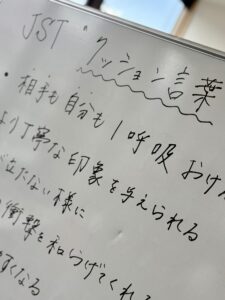 JST・クッション言葉
・相手も自分も1呼吸おけ
より丁寧な印象を与えられる
が立たない様に
衝撃を和らげてくれる
すくなる